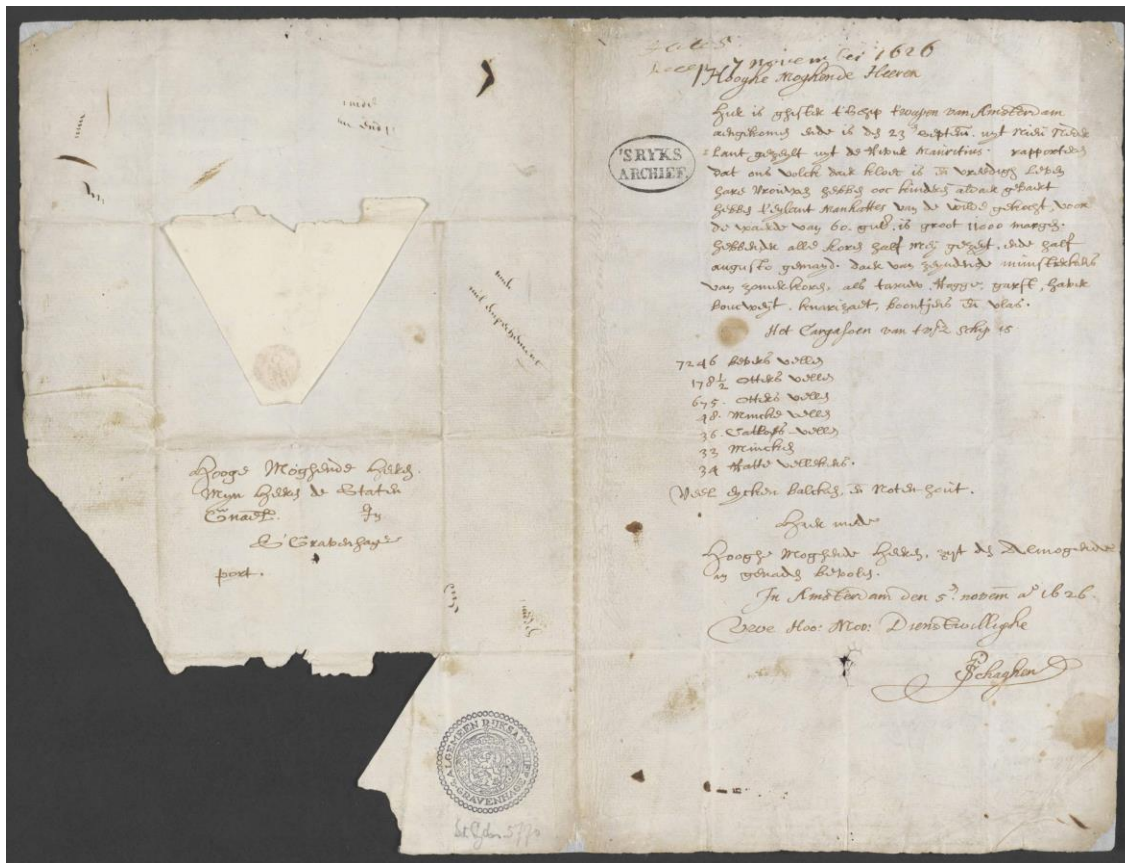 Hooge Moghende Heeren.
Mijn Heeren de Staten
In
S'Gravenhage
port.
ALGEMEEN RIJKSARCHIEF
'S GRAVENHAGE
7 november 1626
Hooghe Moghende Heeren
'S RYKS
ARCHIEF
Hier is ghister t'Schip t'wapen van Amsterdam
aengekomen ende is den 23en septem. uyt Nieu Neder
Lant gezeylt uyt de rivier Mauritius. rapporteren
dat ons volck daer kloec is en vreedigh leven
hare vrouwen hebben ooc kinderen aldaer gebaert
hebben t'eylant Manhattes van de wilde gekocht, voor
de waerde van 60. gul. is groot 11000 margen.
hebbende alle koren half mey gezeyt, ende half
augusto gemayd. daer van zeyndende munsterkens
van zomerkoren, als tarruw, Rogge, garst, haver
boucweyt, knarizaet, boontjens en vlas.
Het Cargasoen van t'vsz schip is
7246 Bevers vellen
178½ otters vellen
675. otters vellen
48. Mincke vellen
36. Catloes vellen
33 Mincken
34 Ratte vellekens.
Veel eycken balcken, en Noten hout.
Hier mede
Hooghe Moghende Heeren, zijt den Almogende
in genaden bevolen.
In Amsterdam den 5en novem aº 1626.
Uwe Hoo: Moo: Dienstwillighe
PSchaghen